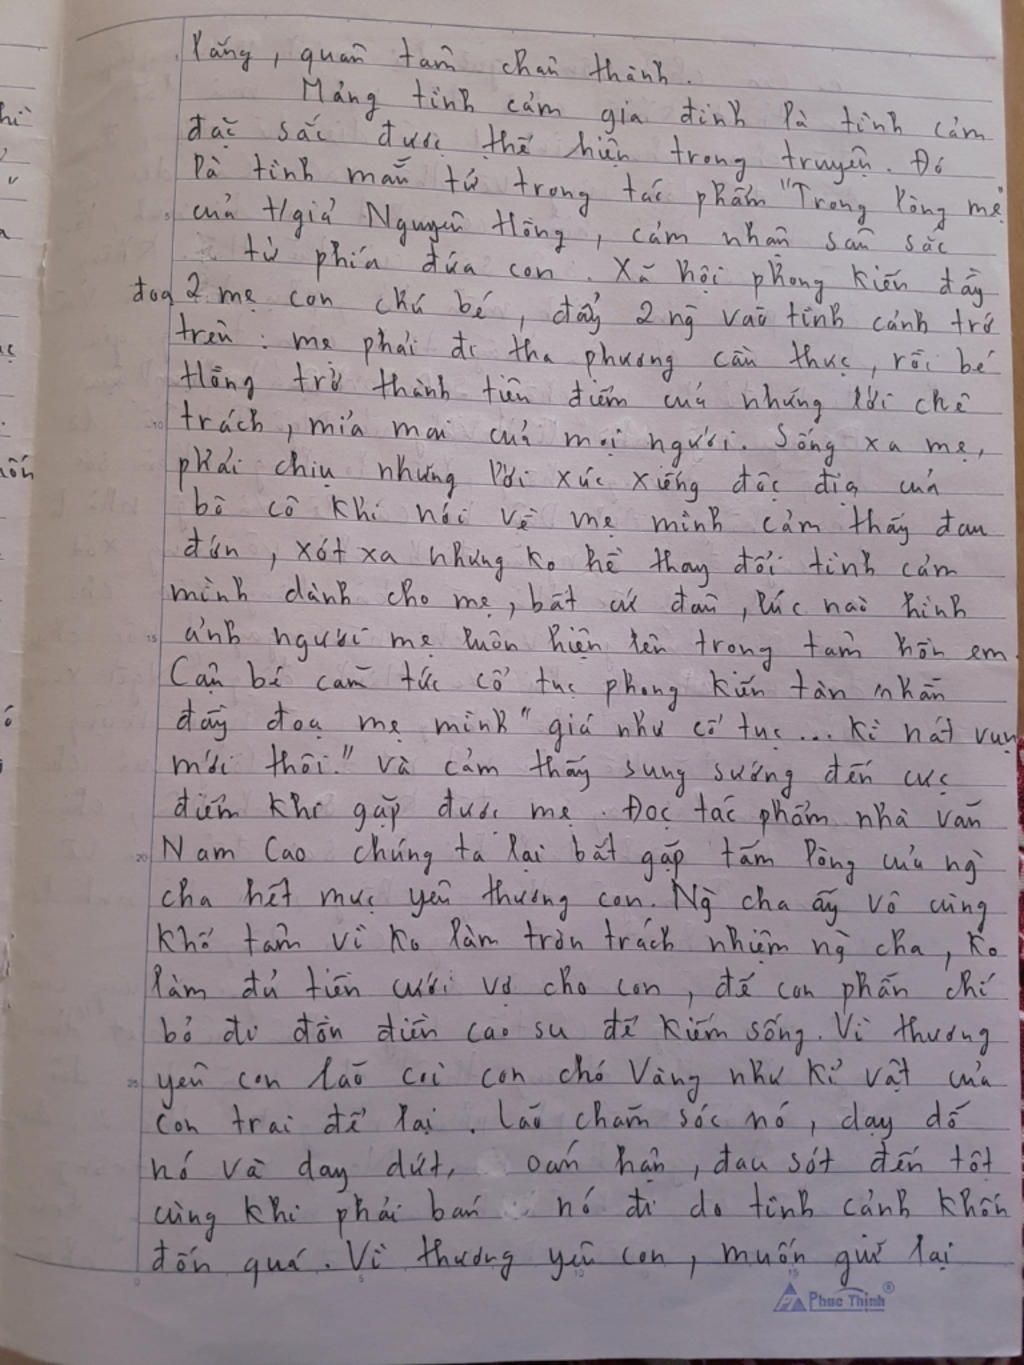 lắng, quan tâm chân thành.
Mảng tình cảm gia đình là tình cảm
đặc sắc được thể hiện trong truyện. Đó
là tình mẫu tử trong tác phẩm "Trong lòng mẹ
của t/giả Nguyên Hồng, cảm nhận sâu sắc
từ phía đứa con. Xã hội phong kiến đầy
đoạ 2 mẹ con chú bé, đẩy 2 ng̀ vào tình cảnh trớ
trêu: mẹ phải đi tha phương cầu thực, rồi bé
Hồng trở thành tiêu điểm của những lời chê
trách, mỉa mai của mọi người. Sống xa mẹ,
phải chịu những lời xúc xiểng độc địa của
bà cô khi nói về mẹ mình cảm thấy đau
đớn, xót xa nhưng ko hề thay đổi tình cảm
mình dành cho mẹ, bất cứ đâu, lúc nào hình
ảnh người mẹ luôn hiện lên trong tâm hồn em.
Cậu bé căm tức cổ tục phong kiến tàn nhẫn
đầy đoạ mẹ mình "giá như cổ tục... kì nát vụn
mới thôi." và cảm thấy sung sướng đến cực
điểm khi gặp được mẹ. Đọc tác phẩm nhà văn
Nam Cao chúng ta lại bắt gặp tấm lòng của ng̀
cha hết mực yêu thương con. Ng̀ cha ấy vô cùng
khổ tâm vì ko làm tròn trách nhiệm ng̀ cha, ko
làm đủ tiền cưới vợ cho con, để con phẫn chí
bỏ đi đồn điền cao su để kiếm sống. Vì thương
yêu con lão coi con chó Vàng như kỉ vật của
con trai để lại. Lão chăm sóc nó, dạy dỗ
nó và day dứt, oán hận, đau sót đến tột
cùng khi phải bán nó đi do tình cảnh khốn
đốn quá. Vì thương yêu con, muốn giữ lại
Phuc Thinh